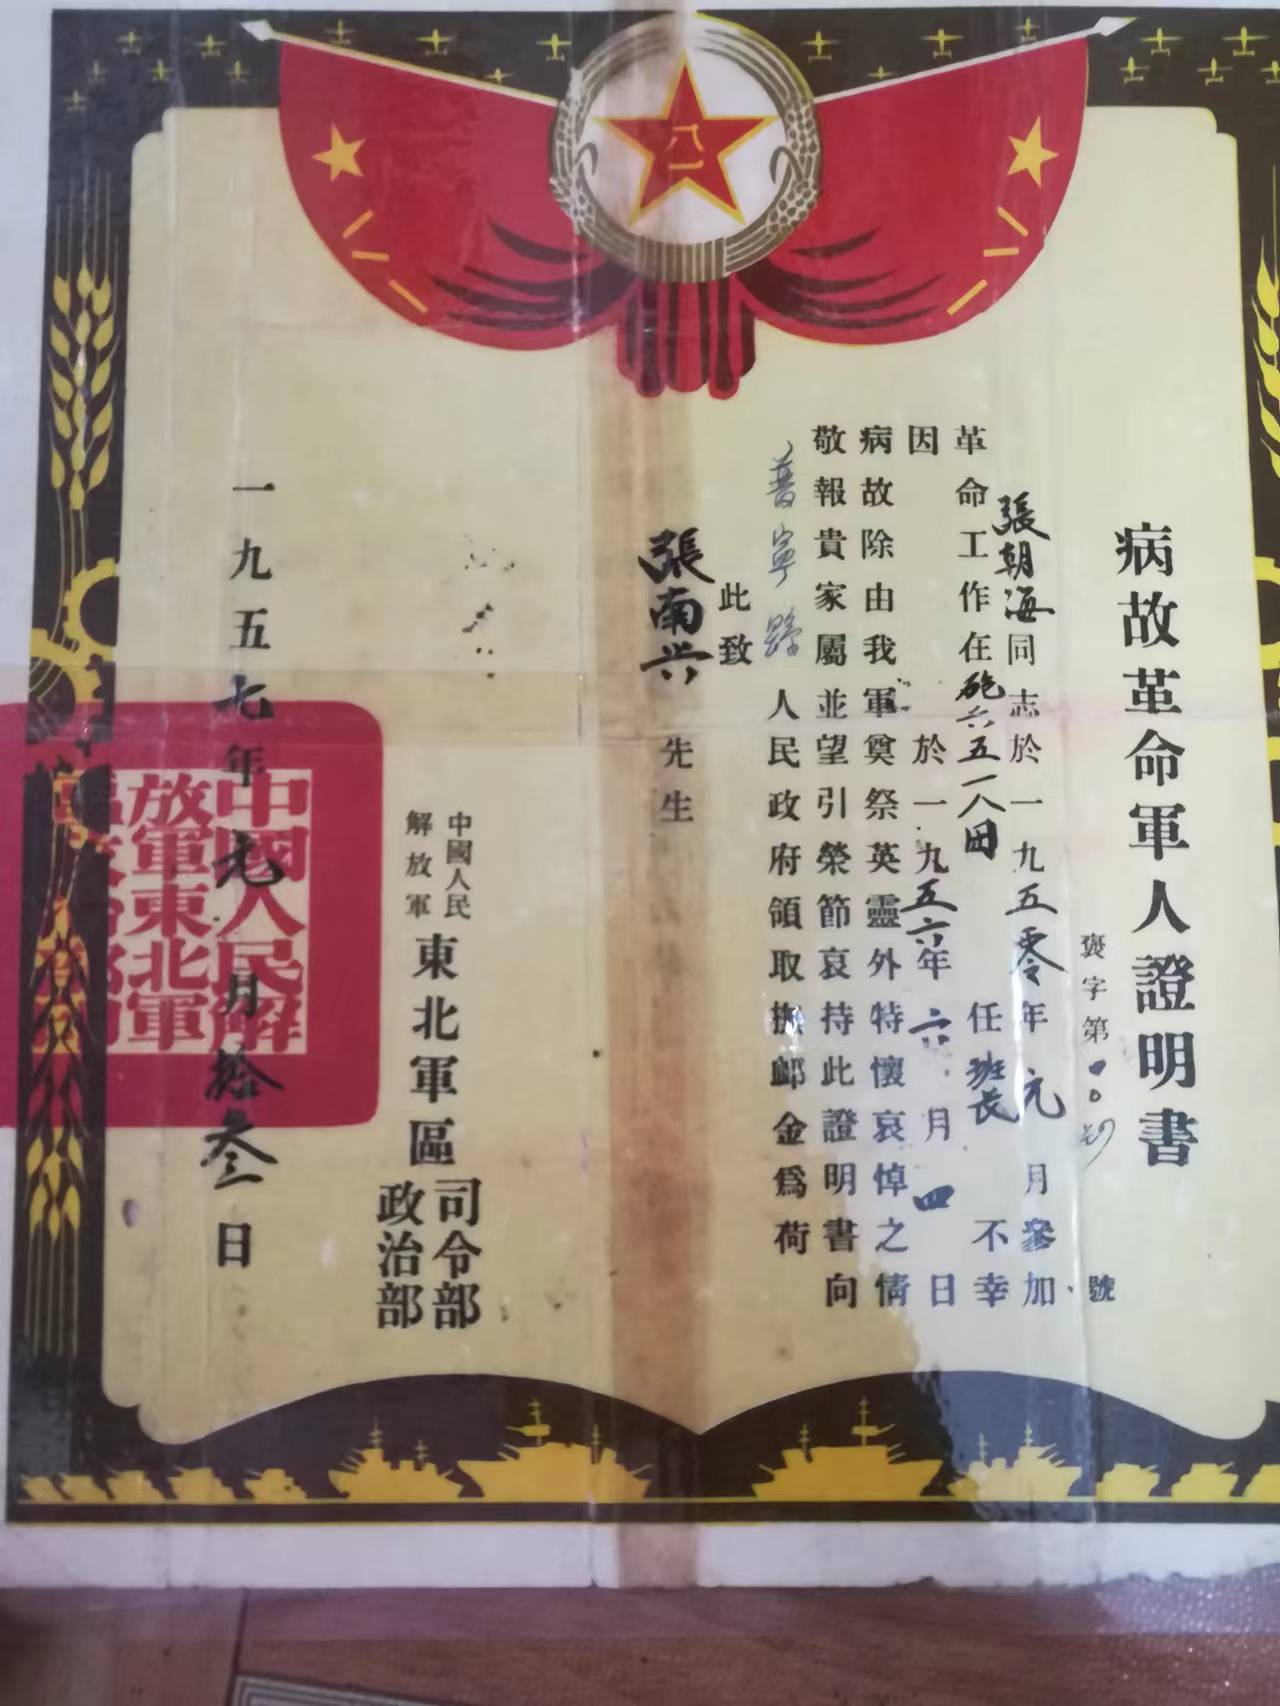 八一
八一
八一
病故革命軍人證明書
褒字第 號
張朝海同志於一九五零年元月參加
革命工作在砲六五一八団任班长不幸
因 於一九五六年六月四日
病故除由我軍奠祭英靈外特懷哀悼之情
敬報貴家屬並望引榮節哀持此證明書向
普寧縣人民政府領取撫卹金為荷
此致
張南兴先生
中國人民解放軍東北軍區司令部政治部
一九五七年元月拾叁日
中國人民解
放軍東北軍